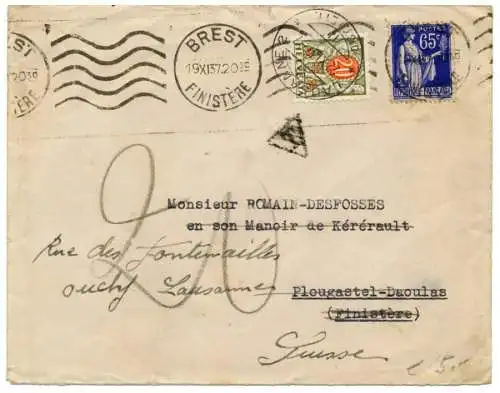 BREST
19XI37.20
FINISTÈRE
20
POSTES
65c
T
Monsieur ROMAIN-DESFOSSES
en son Manoir de Kérérault
Rue des Fontenailles
Ouchy Lausanne
Plougastel-Daoulas
(Finistère)
20
Suisse